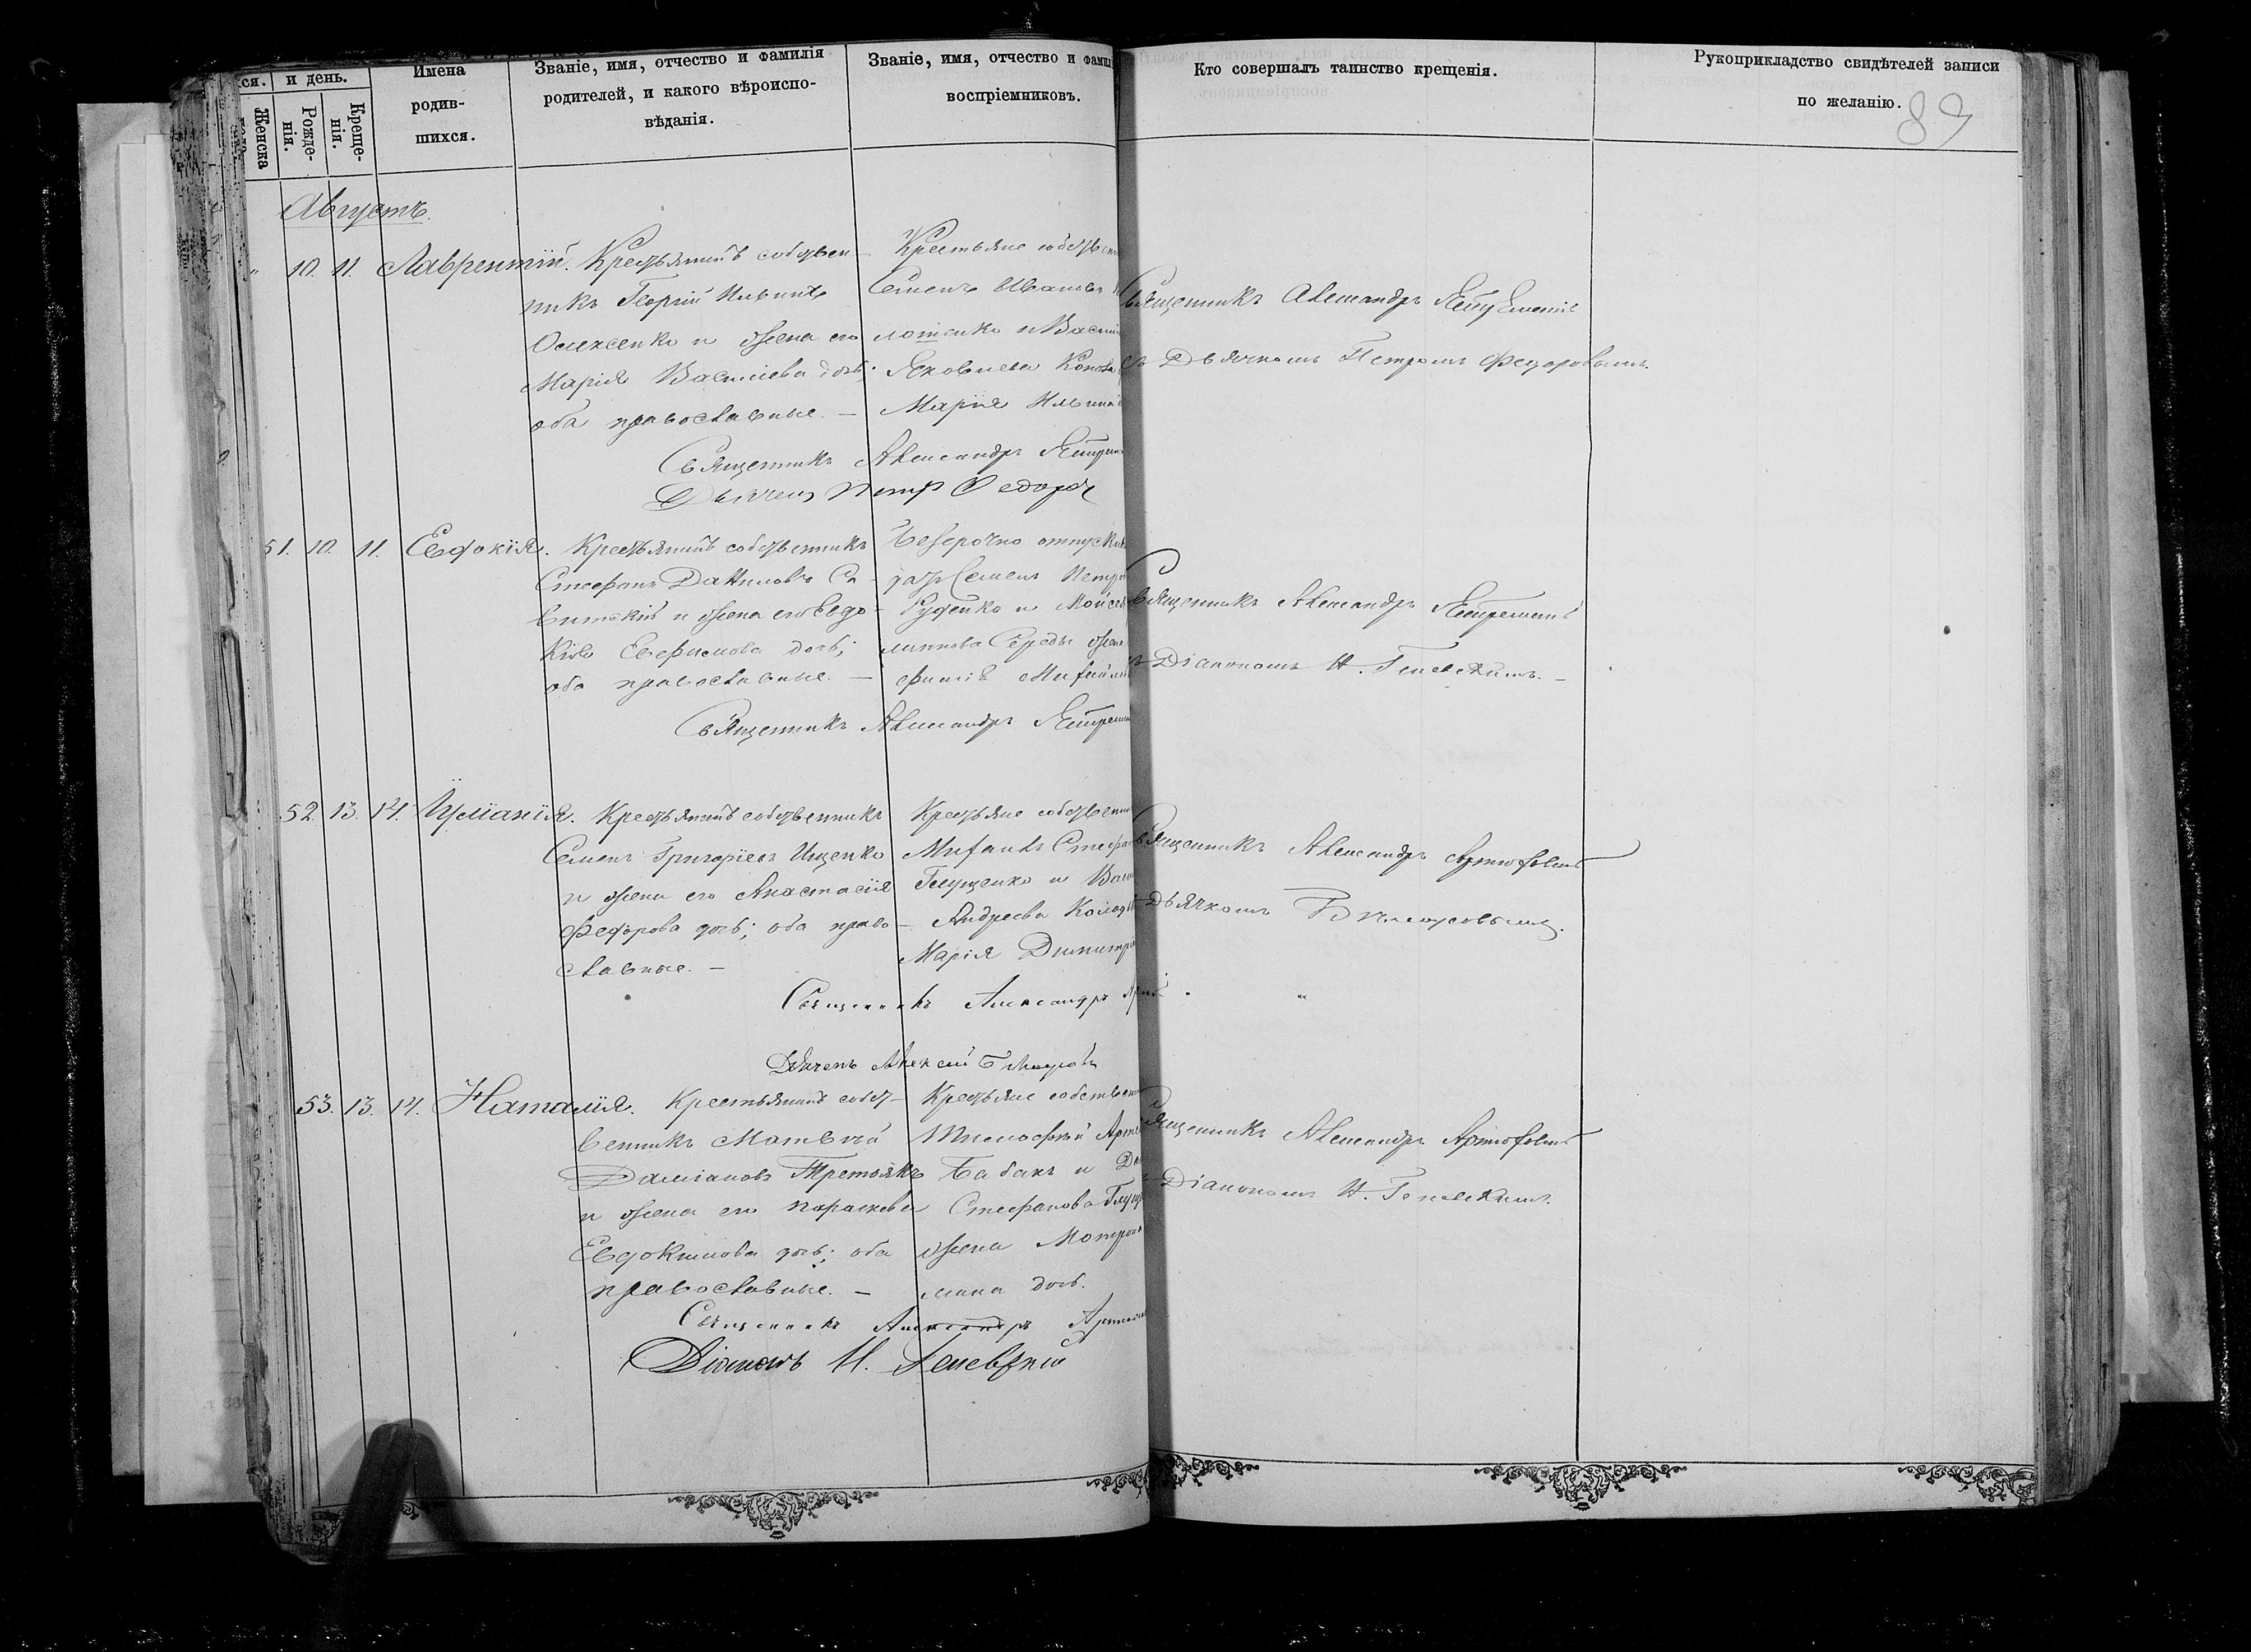 ся. и день.
Женска
Рожде-
нія.
Креще-
нія.
Имена
родив-
шихся.
Званіе, имя, отчество и фамилія
родителей, и какого вѣроиспо-
вѣданія.
Званіе, имя, отчество и фамил
воспріемниковъ.
Кто совершалъ таинство крещенія.
Рукоприкладство свидѣтелей записи
по желанію.
89
Августъ.
10. 11. Лаврентій.
Крестьянинъ собствен-
никъ Георгій Ильинъ
и жена его
Марія Васильева дочь;
оба православные. —
Крестьяне собствен
Семенъ Ивановъ
лотенко и Васил
Яковлева Конова
Марія Ильина
Священникъ Александръ
съ Дьячкомъ Петромъ Федоровымъ.
Священникъ Александръ
Дьячекъ Петръ Федоровъ
51. 10. 11. Евдокія.
Крестьянинъ собственникъ
Стефанъ Даниловъ Са-
витскій и жена его Евдо-
кія Евфимова дочь;
оба православные. —
Безсрочно отпускн
Семенъ Петро
Руденко и Моисе
Середы жена
Михайл
Священникъ Александръ
съ Діакономъ И. Геневскимъ. —
Священникъ Александръ
52. 13. 14.
Крестьянинъ собственникъ
Семенъ Григоріевъ Ищенко
и жена его Анастасія
Федорова дочь; оба право-
славные. —
Крестьяне собственни
Михаилъ Стефан
Глущенко и Васи
Андреева Колод
Марія Димитрі
Священникъ Александръ Артюховскій
Дьячкомъ
Священникъ Александръ
Дьячекъ Алексѣй
53. 13. 14. Наталія.
Крестьянинъ собст-
венникъ Матвѣй
Даміановъ Третьякъ
и жена его Параскева
Евдокимова дочь; оба
православные. —
Крестьяне собственн
Тимофѣй Арте
Бабакъ и
Стефанова Глущ
жена Матрона
мина дочь.
Священникъ Александръ Артюховскій
Діакономъ И. Геневскимъ.
Священникъ Александръ
Діаконъ И. Геневскій